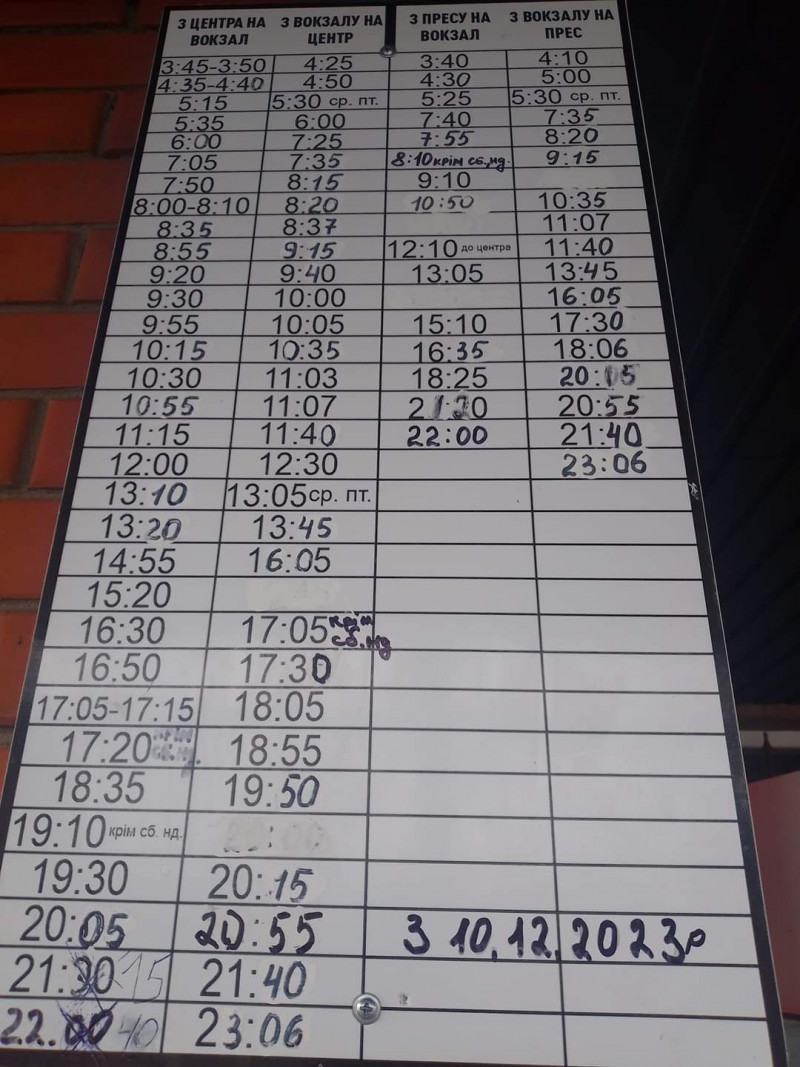 З ЦЕНТРА НА ВОКЗАЛ З ВОКЗАЛУ НА ЦЕНТР З ПРЕСУ НА ВОКЗАЛ З ВОКЗАЛУ НА ПРЕС
3:45-3:50 4:25 3:40 4:10
4:35-4:40 4:50 4:30 5:00
5:15 5:30 ср. пт. 5:25 5:30 ср. пт.
5:35 6:00 7:40 7:35
6:00 7:25 7:55 8:20
7:05 7:35 8:10 крім сб., нд. 9:15
7:50 8:15 9:10
8:00-8:10 8:20 10:50 10:35
8:35 8:37 11:07
8:55 9:15 12:10 до центра 11:40
9:20 9:40 13:05 13:45
9:30 10:00 16:05
9:55 10:05 15:10 17:30
10:15 10:35 16:35 18:06
10:30 11:03 18:25 20:05
10:55 11:07 21:20 20:55
11:15 11:40 22:00 21:40
12:00 12:30 23:06
13:10 13:05 ср. пт.
13:20 13:45
14:55 16:05
15:20
16:30 17:05 крім сб. нд
16:50 17:30
17:05-17:15 18:05
17:20 крім сб. нд. 18:55
18:35 19:50
19:10 крім сб. нд.
19:30 20:15
20:05 20:55 З 10.12.2023р
21:30 15 21:40
22.00 40 23:06